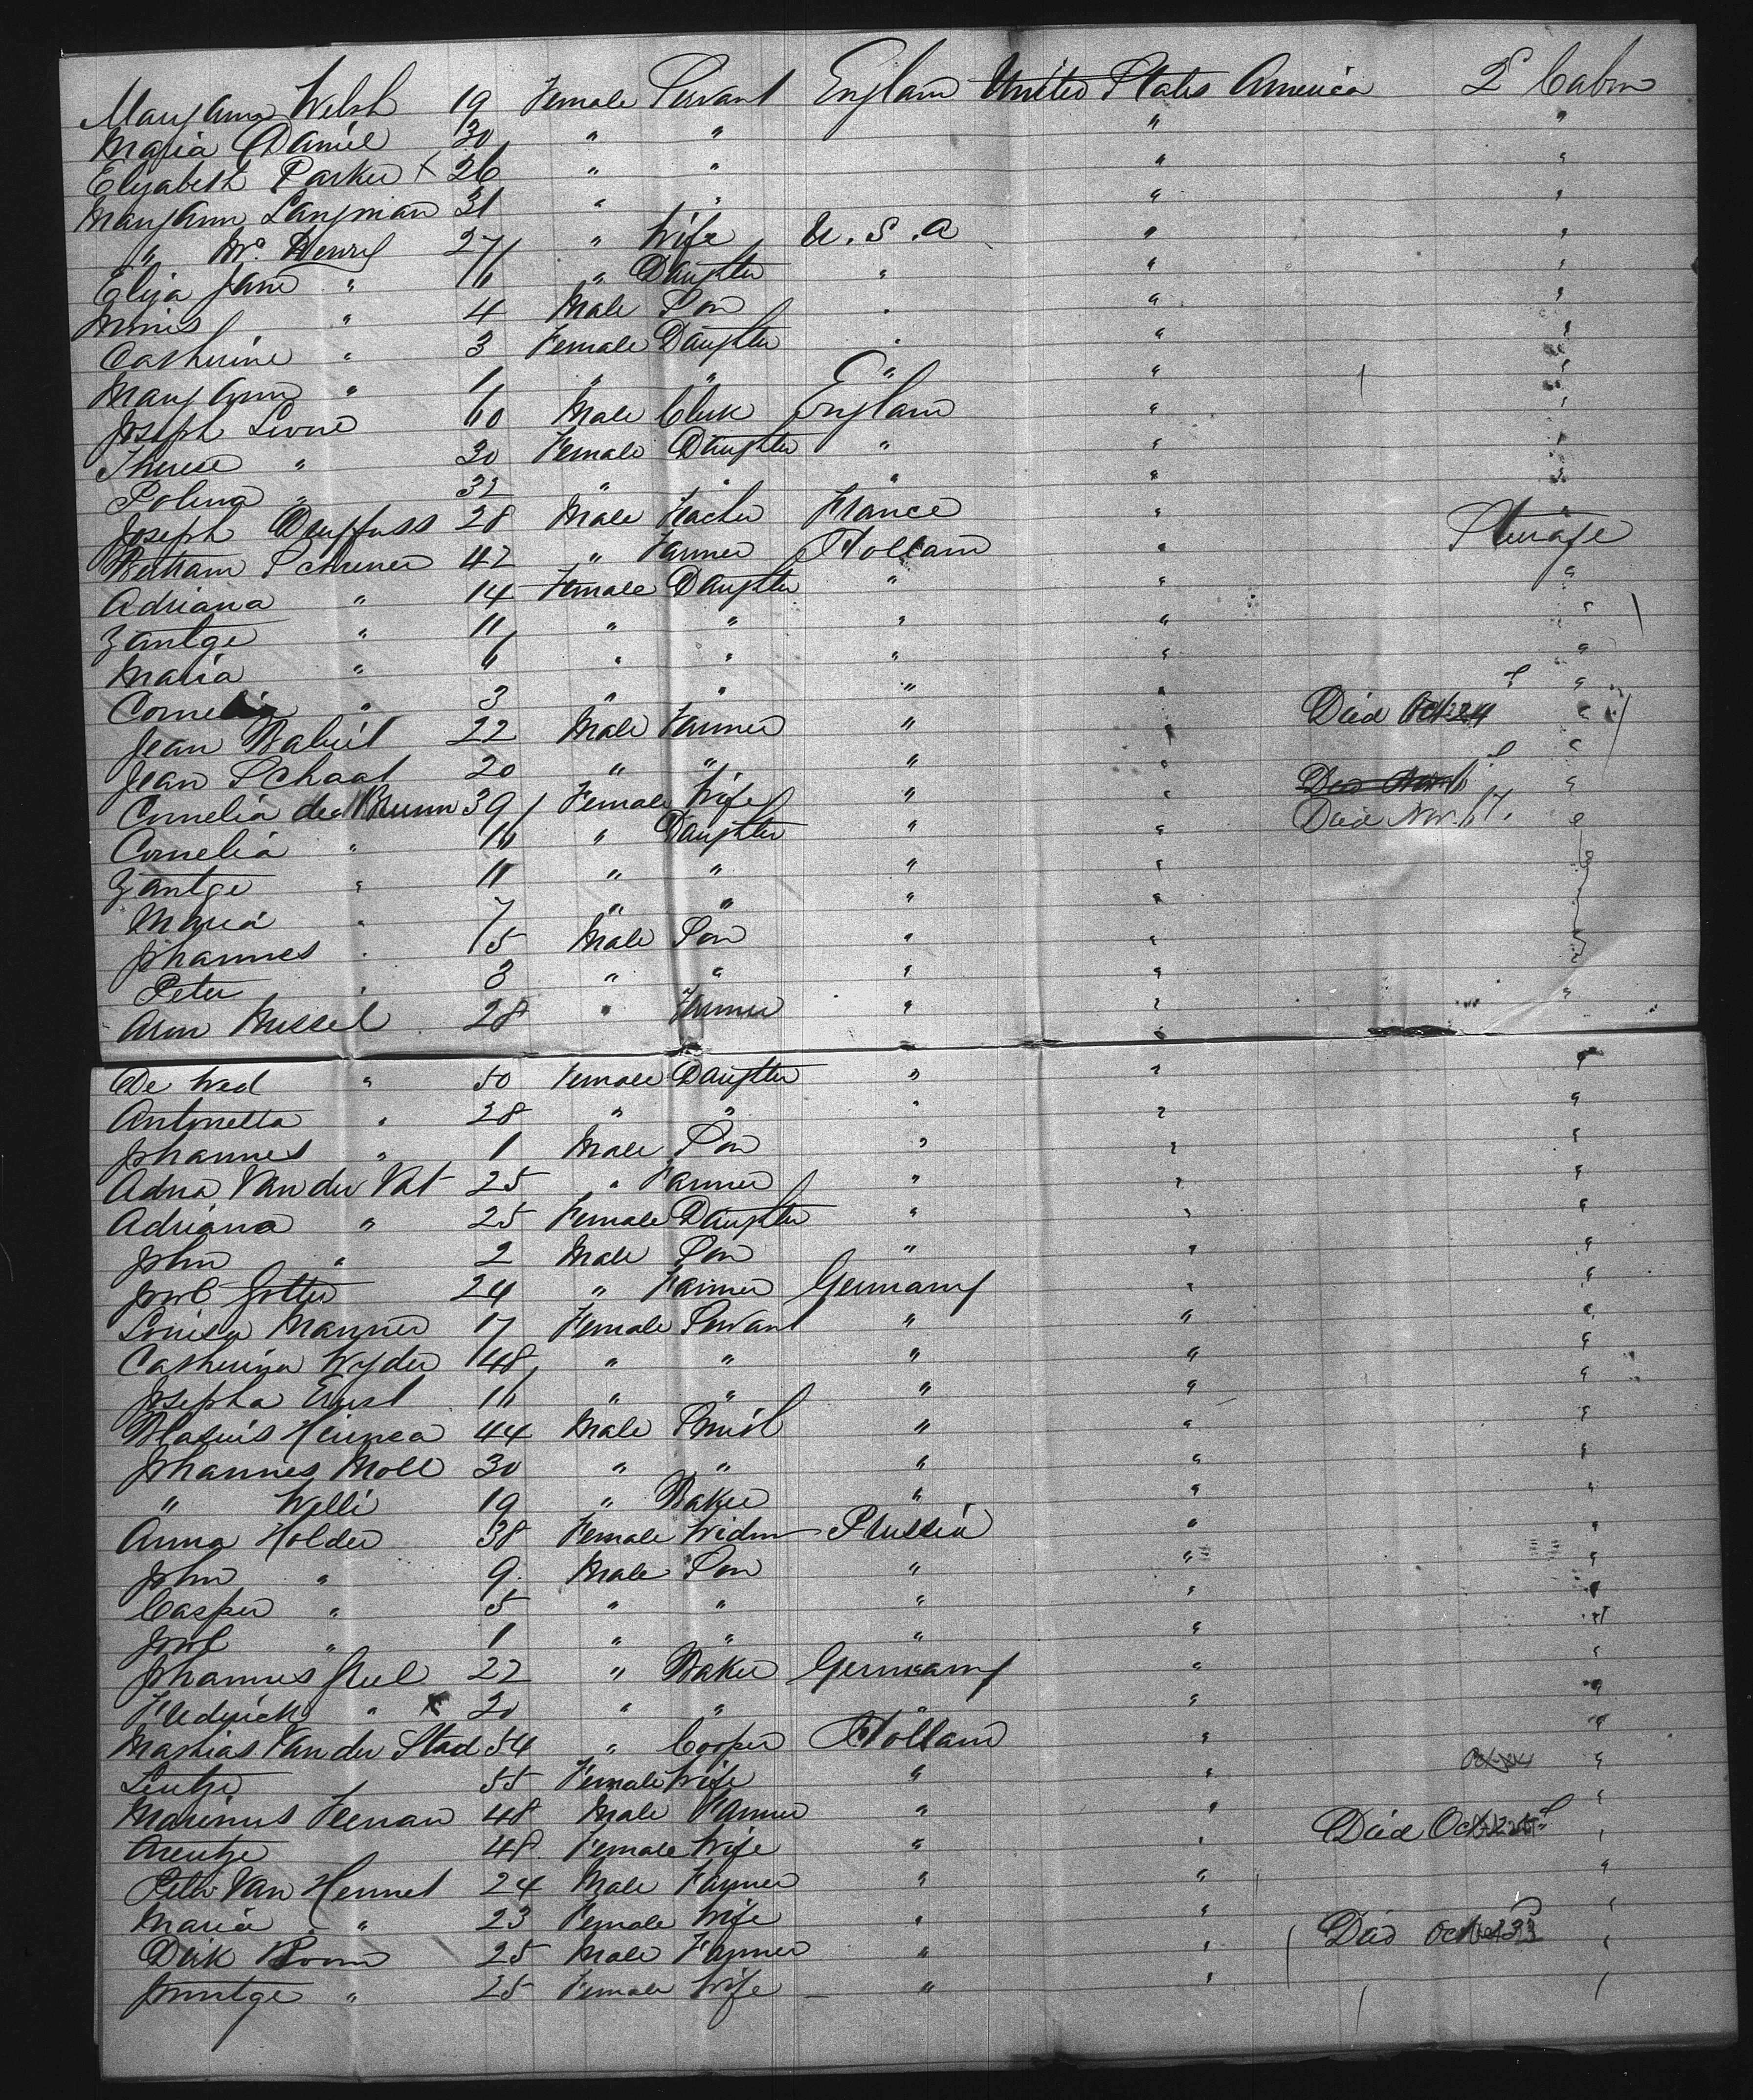 Mary Ann Welsh 19 Female Servant England United States America 2d Cabin
Maria Daniel 30 " " " "
Elizabeth Parker x 26 " " " "
Mary Ann Langman 31 " " " "
" Mc Henry 27 " Wife U.S.A " "
Eliza Jane " 6 " Daughter " " "
" 4 Male Son " " "
Catherine " 3 Female Daughter " " "
Mary Ann " 1 " " " " "
Joseph 60 Male Clerk England " "
Therese " 30 Female Daughter " " "
Polina " 32 " " " " "
Joseph Dreyfuss 28 Male Teacher France " "
Bertram Schrener 42 " Farmer Holland " Steerage
Adriana " 14 Female Daughter " " "
Zantge " 11 " " " " "
Maria " 6 " " " " "
Cornelia " 3 " " " " "
Jean 22 Male Farmer " " Died Oct 24 "
Jean Schaal 20 " " " " "
Cornelia de Bruun 39 Female Wife " " Died Nov 6 "
Cornelia " 16 " Daughter " " Died Nov. "
Zantge " 11 " " " "
Maria " 7 " " " "
Johannes " 5 Male Son " "
Peter " 3 " " " "
Aron Mussel 28 " Farmer " " "
De Wed " 50 Female Daughter " " "
Antonetta " 28 " " " " "
Johannes " 1 Male Son " " "
Adna Van der Vat 25 " Farmer " " "
Adriana " 25 Female Daughter " " "
John " 2 Male Son " " "
24 " Farmer Germany " "
Louisa 17 Female Servant " " "
Catherina Wyder 48 " " " " "
Josepha Ernst 16 " " " " "
Blasius 44 Male Smith " " "
Johannes Moll 30 " " " " "
" Willi 19 " Baker " " "
Anna Holder 38 Female Widow Prussia " "
John " 9 Male Son " " "
Casper " 5 " " " " "
" 1 " " " " "
Johannes 22 " Baker Germany " "
Fredrick " x 20 " " " " "
Mathias Van der Stad 54 " Cooper Holland " "
Leutje 55 Female Wife " " Oct 24 "
Marinus 48 Male Farmer " " "
Arentje 48 Female Wife " " Died Oct "
Peter Van Hemmet 24 Male Farmer " " "
Maria " 23 Female Wife " " "
Dirk Boom 25 Male Farmer " " Died Oct "
" 25 Female Wife " "